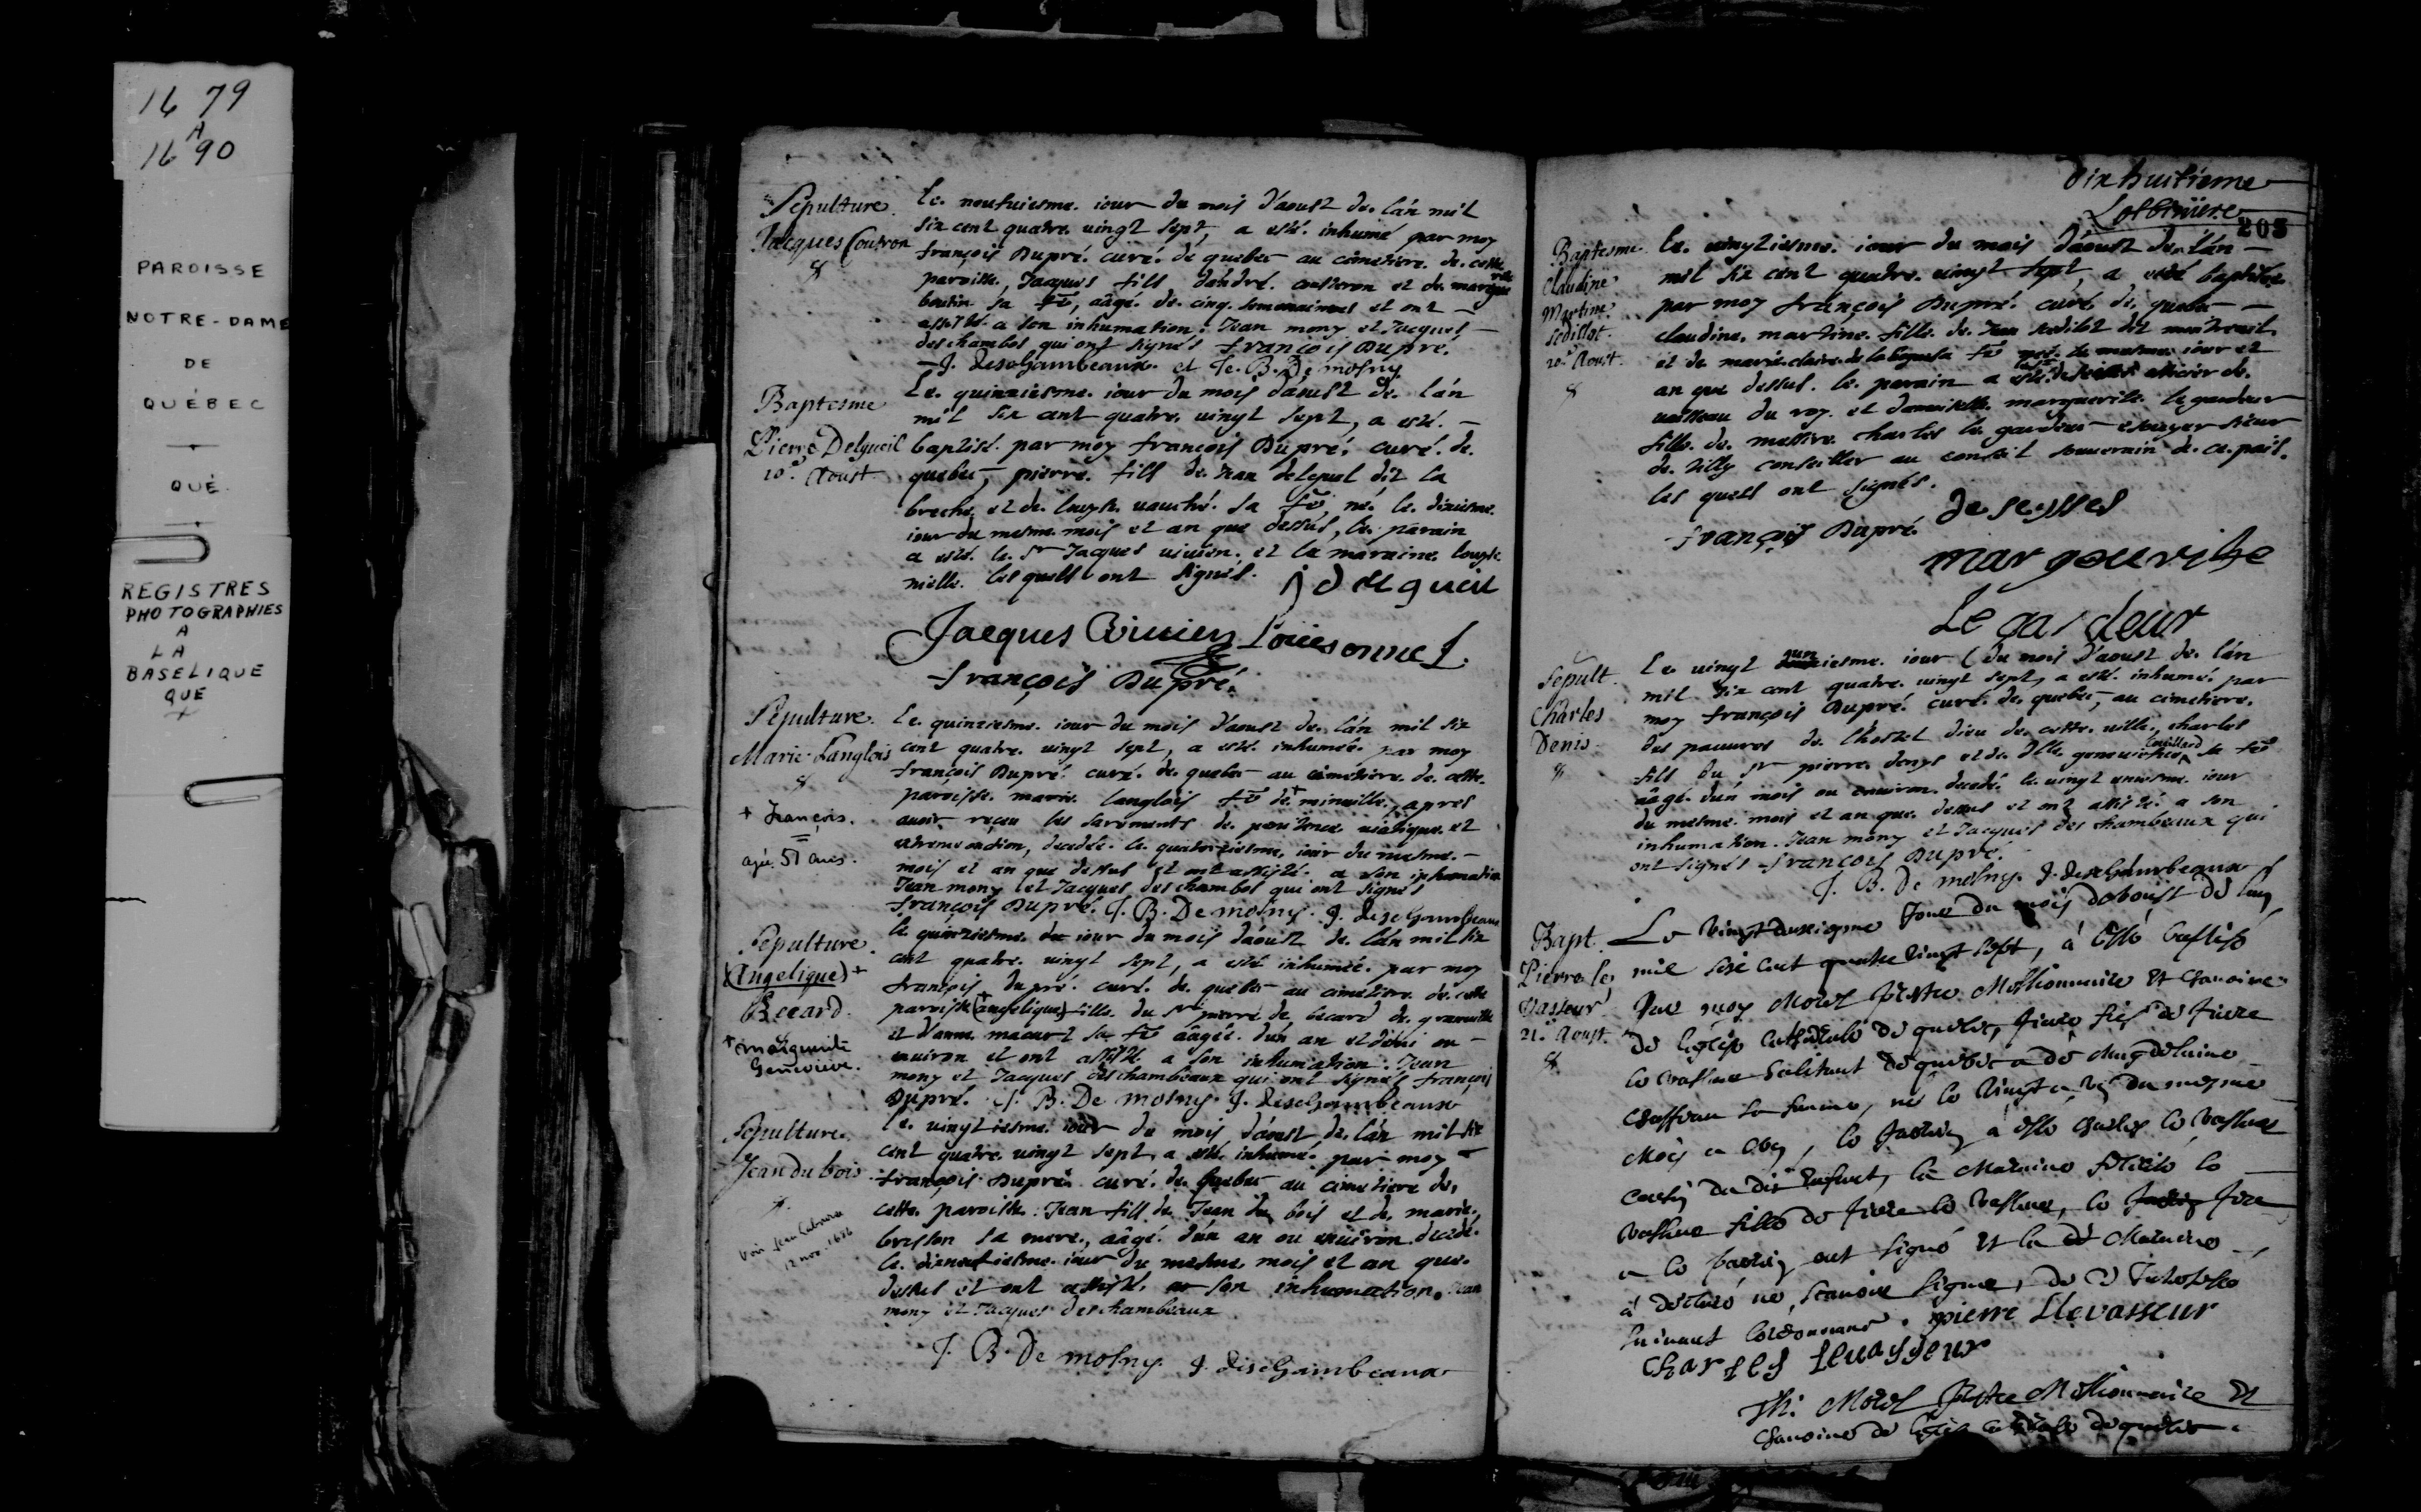 1679
A
1690
PAROISSE
NOTRE-DAME
DE
QUÉBEC
QUÉ.
REGISTRES
PHOTOGRAPHIES
A
LA
BASELIQUE
QUE
Sepulture
Jacques Coutron
Le neufuiesme iour du mois d'aoust de l'an mil
six cent quatre vingt sept, a esté inhumé par moy
françois Dupré curé de quebec au cimetiere de cette
paroisse, Jacques fils d'andré cousteron et de marque
boutin sa fe, aâgé de cinq semenaines et ont
assisté a son inhumation Jean mony et Jacques
deschambos qui ont signés françois Dupré
J. deschambeaux et J. B. De mosny
Baptesme
Pierre Delgueil
10e Aoust
Le quinziesme iour du mois d'aoust de l'an
mil six cent quatre vingt sept, a esté
baptisé par moy françois Dupré curé de
quebec, pierre fils de Jean delguel dit la
breche et de louyse vauché sa fe, né le dixiesme
iour du mesme mois et an que dessus, le parain
a esté le Sr Jacques uiuien et la maraine louyse
nielle lesquels ont signés. j delgueil
Jacques Viuien
françois Dupré
Sepulture
Marie Langlois
+ François
agée 51 ans.
Le quinziesme iour du mois d'aoust de l'an mil six
cent quatre vingt sept, a esté inhumée par moy
françois Dupré curé de quebec au cimetiere de cette
paroisse marie langlois fe de + minuille, apres
auoir reçeu les sacrements de penitence uiatique et
extreme onction, decedée le quatorziesme iour du mesme
mois et an que dessus et ont assisté a son inhumation
Jean mony et Jacques deschambos qui ont signés
françois Dupré. J. B. De mosny. J. deschambeaux
Sepulture
(Angelique) +
Becard
+ marguerite
Genevieve.
le quinziesme du iour du mois d'aoust de l'an mil six
cent quatre vingt sept, a esté inhumée par moy
françois dupré curé de quebec au cimetiere de cette
paroisse (angelique) fille du Sr pierre de becard de granuille
et d'anne macart sa fe aâgée d'un an et demi en
enuiron et ont assisté a son inhumation Jean
mony et Jacques deschambeaux qui ont signés françois
Dupré. J. B. De mosny. J. deschambeaux
Sepulture
Jean du bois
Voir
12 nov. 1686
le vingtiesme iour du mois d'aoust de l'an mil six
cent quatre vingt sept, a esté inhumé par moy
françois Dupré curé de Quebec au cimetiere de
cette paroisse Jean fils de Jean du bois et de marie
brisson sa mere, aâgé d'un an ou enuiron decedé
le dixneufiesme iour du mesme mois et an que
dessus et ont assisté a son inhumation Jean
mony et Jacques deschambeaux
J. B. De mosny. J. deschambeaux
Dixhuitieme
Lotbiniere
203
Baptesme
Claudine
Martine
Sedillot
20e Aoust
le vingtiesme iour du mois d'aoust de l'an
mil six cent quatre vingt sept, a esté baptisée
par moy françois Dupré curé de quebec
claudine martine fille de Jean sedilot dit montreuil
et de marie claire de la hogue sa fe née le mesme iour et
an que dessus. le parain a esté officier de
vaisseau du roy et damoiselle marguerite legardeur
fille de messire charles le gardeur escuyer sieur
de tilly conseiller au conseil souuerain de ce païs.
les quels ont signés.
françois Dupré de seysses
margeurite
Le gardeur
Sepult.
Charles
Denis
Le vingt uniesme iour du mois d'aoust de l'an
mil six cent quatre vingt sept, a esté inhumé par
moy françois Dupré curé de quebec, au cimetiere
des pauures de l'hostel dieu de cette ville, charles
fils du Sr pierre denys et de Dlle geneuiefue couillard sa fe
aâgé d'un mois ou enuiron decedé le vingt uniesme iour
du mesme mois et an que dessus et ont assisté a son
inhumation Jean mony et Jacques des chambeaux qui
ont signés françois Dupré.
J. B. De mosny. J. deschambeaux
Bapt.
Pierre le
Vasseur
21e Aoust
Le vingt deuxiesme Jour du mois daoust de lan
mil sixe cent quatre vingt sept, à Esté baptisé
Par moy Morel prestre Missionnaire Et chanoine
de leglise cathedrale de quebec, pierre fils de pierre
le vasseur habitant de quebec et de magdelaine
chasseau sa femme, né le vingt un du mesme
Mois et an, le parrain a esté charles le vasseur
cousin du dit enfant, la Maraine le
vasseur fille de pierre le vasseur, le pere
et le parrain ont signé Et la de Maraine
à declaré ne scauoir signer, de ce
suiuant lordonnance. pierre Lleuasseur
charles leuasseur
Th: Morel prestre Missionnaire Et
chanoine de leglise cathedrale de quebec